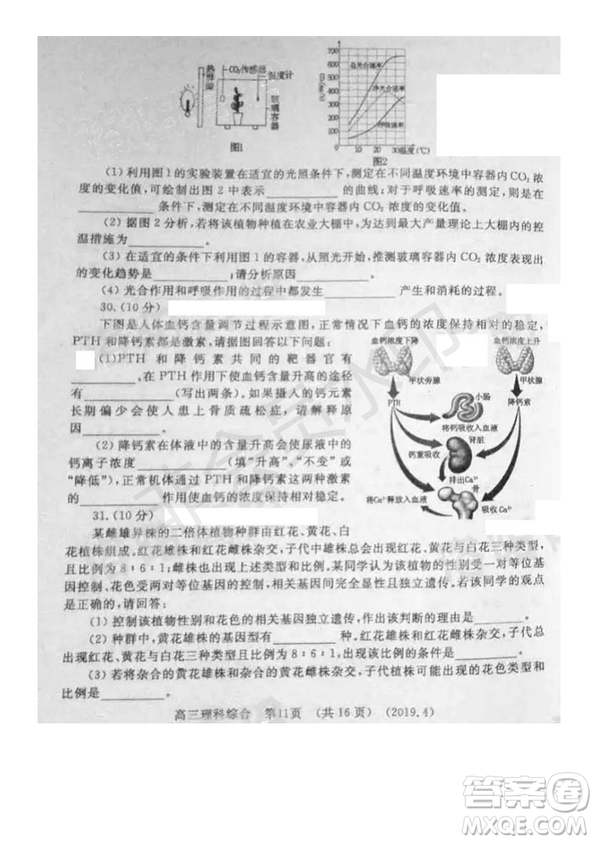 热屏障
CO₂传感器
温度计
玻璃容器
图1
CO₂(mg/h)
700
600
500
400
300
200
100
0
总光合速率
净光合速率
呼吸速率
10 20 30温度(℃)
图2
(1)利用图1的实验装置在适宜的光照条件下,测定在不同温度环境中容器内CO₂浓
度的变化值,可绘制出图2中表示__________的曲线;对于呼吸速率的测定,则应在
__________条件下,测定在不同温度环境中容器内CO₂浓度的变化值。
(2)据图2分析,若将该植物种植在农业大棚中,为达到最大产量理论上大棚内的控
温措施为__________。
(3)在适宜的条件下利用图1的容器,从照光开始,推测玻璃容器内CO₂浓度表现出
的变化趋势是__________;请分析原因__________。
(4)光合作用和呼吸作用的过程中都发生__________产生和消耗的过程。
30.(10分)
下图是人体血钙含量调节过程示意图,正常情况下血钙的浓度保持相对稳定,
PTH和降钙素都是激素,请据图回答以下问题:
(1)PTH和降钙素共同的靶器官有
__________。在PTH作用下使血钙含量升高的途径
有__________(写出两条)。如果摄入的钙元素
长期偏少会使人患上骨质疏松症,请解释原因
__________。
(2)降钙素在体液中的含量升高会使尿液中的
钙离子浓度__________(填“升高”、“不变”或
“降低”),正常机体通过PTH与降钙素这两种激素
的__________作用使血钙的浓度保持相对稳定。
血钙浓度下降
血钙浓度上升
甲状旁腺
甲状腺
PTH
小肠
降钙素
将钙吸收入血液
肾脏
钙重吸收
排出Ca²⁺
骨
将Ca²⁺释放入血液
吸收Ca²⁺
31.(10分)
某雌雄异株的二倍体植物种群由红花、黄花、白
花植株组成。红花雄株和红花雌株杂交,子代中雄株总会出现红花、黄花与白花三种类型,
且比例均为8∶6∶1,雌株也出现上述类型和比例。某同学认为该植物的性别受一对等位
基因的控制、花色受两对等位基因的控制,且性别与花色的相关基因独立遗传。若该同学的观点
是正确的,请回答:
(1)控制该植物性别和花色的相关基因独立遗传,作出该判断的理由是__________。
(2)种群中,黄花雄株的基因型有__________种;若某红花雄株与黄花雌株杂交,子代总
出现红花、黄花与白花三种类型且比例为8∶6∶1,原因是__________。
(3)若将杂合的黄花雄株与杂合的黄花雌株杂交,子代植株可能出现的花色的类型和
比例为__________。
高三理科综合 第11页 (共16页) (2019.4)
非会员水印
答案卷
MXQE.COM